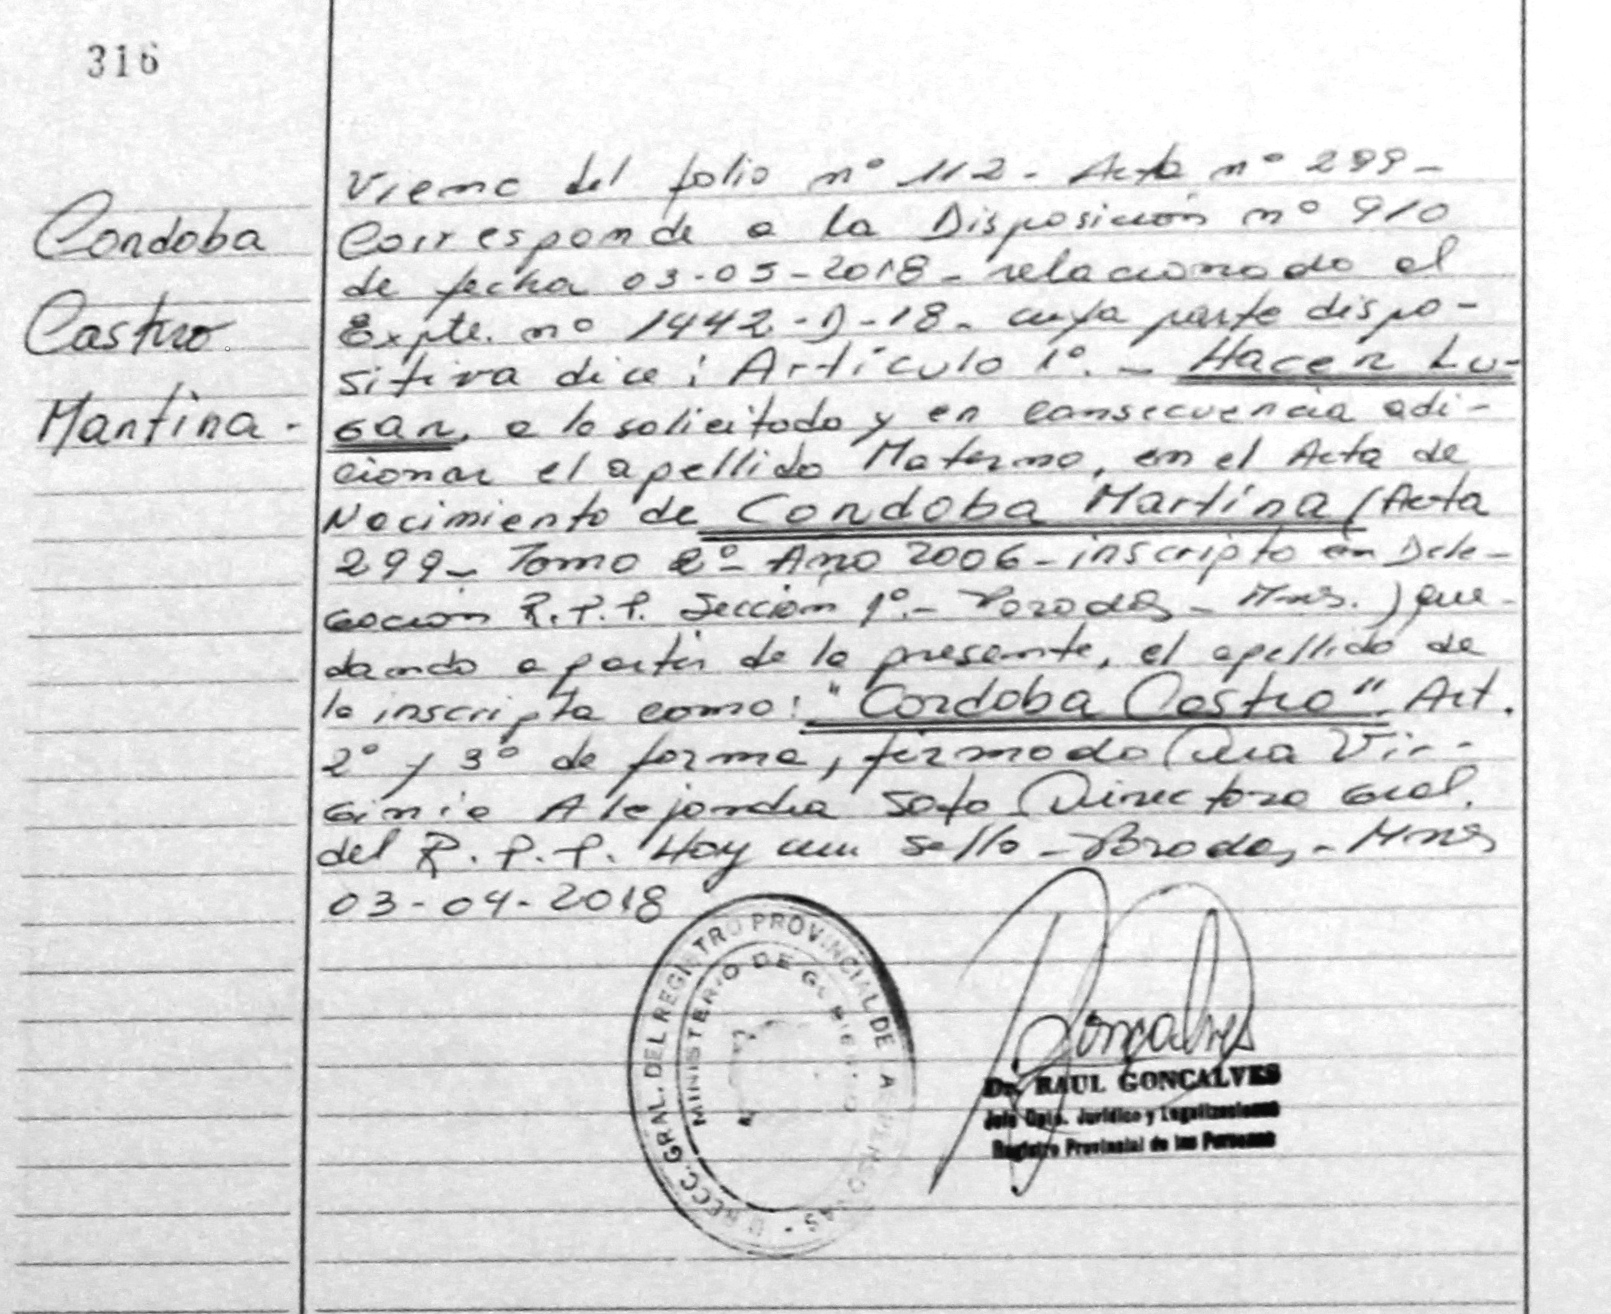 316
Cordoba
Castro
Martina.
Viene del folio nº 112. Acta nº 299-
Corresponde a la Disposición nº 910
de fecha 03-05-2018- relacionado al
Expte. nº 1442-D-18- cuya parte dispo-
sitiva dice: Artículo 1º.- Hacer Lu-
gar, a lo solicitado y en consecuencia adi-
cionar el apellido Materno, en el Acta de
Nacimiento de Cordoba Martina (Acta
299- Tomo 2º- Año 2006- inscripto en Dele-
gación R.P.P. Sección 1º.- Posadas- Mnes.) que-
dando a partir de la presente, el apellido de
la inscripta como: "Cordoba Castro". Art.
2º y 3º de forma, firmado Vir-
ginia Alejandra Soto Directora Gral.
del R.P.P. Hay un sello- Posadas,- Mnes
03-04-2018
DIRECC. GRAL. DEL REGISTRO PROVINCIAL DE LAS PERSONAS
MINISTERIO DE GOBIERNO
Gonçalves
Dr. RAUL GONCALVES
Jefe Dpto. Jurídico y Legalizaciones
Registro Provincial de las Personas